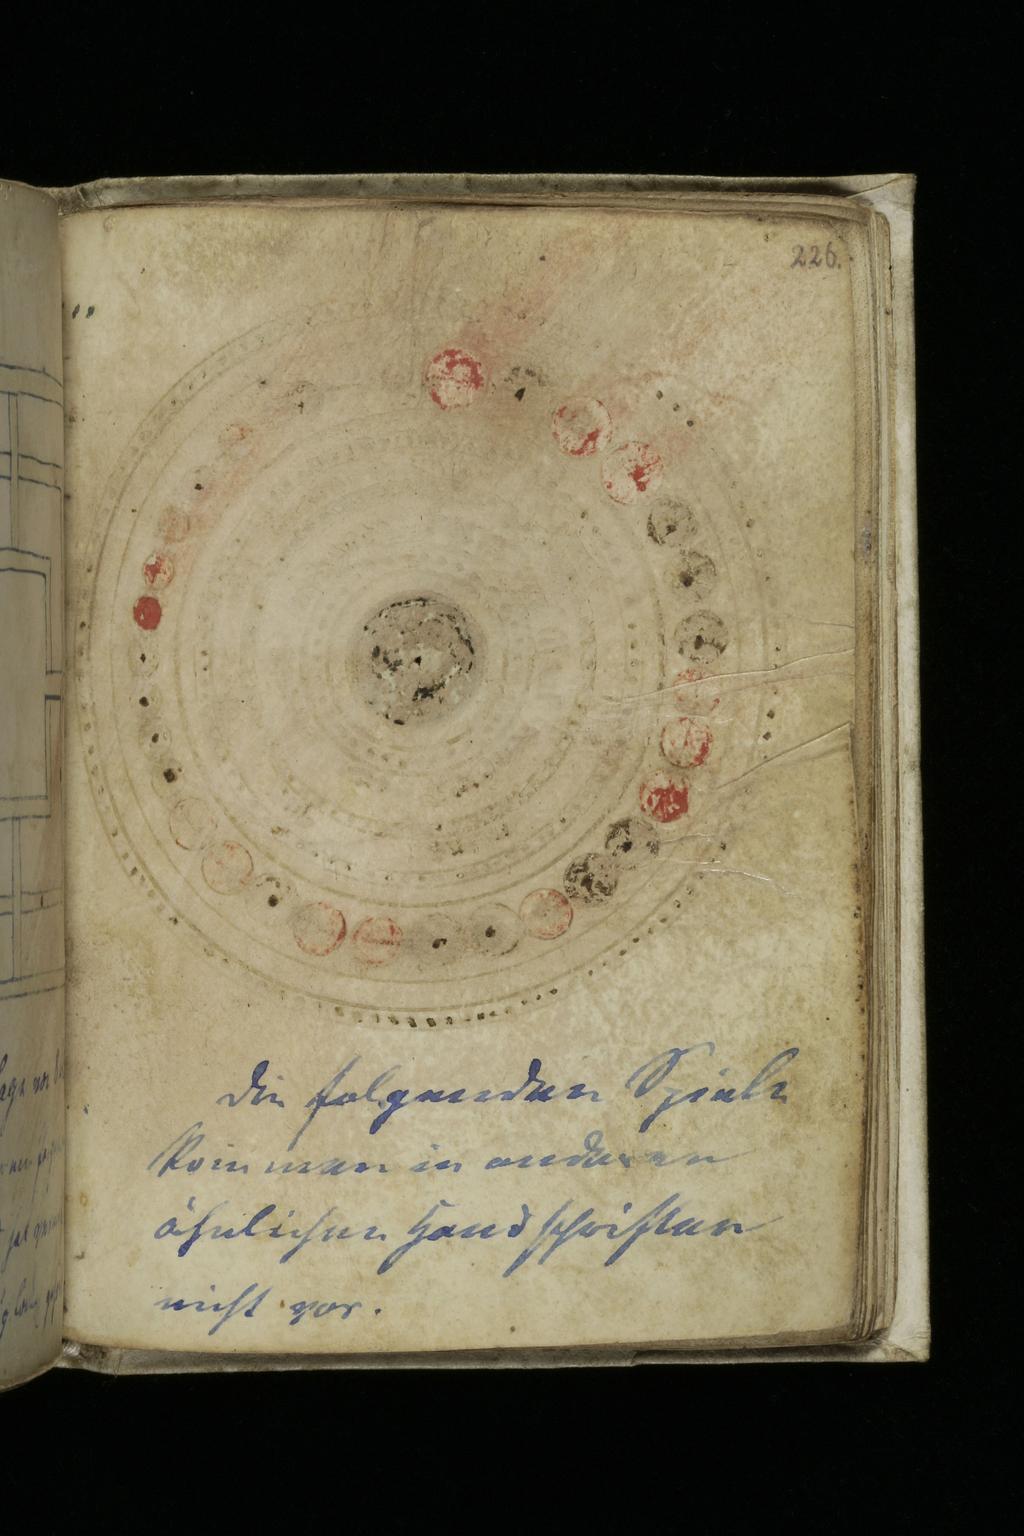 226.
Die folgenden Spiele
kommen in anderen
ähnlichen Handschriften
nicht vor.